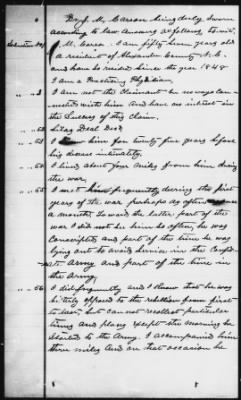 Dr. J. M. Carson being duly sworn
according to law answers as follows to wit.
M. Carson. I am fifty seven years old
a resident of Alexander County N.C.
and have so resided since the year 1848
I am a Practicing Physician
2 I am not the claimant in no ways con-
nected with him and have no interest in
the success of this claim.
" " 52 Silas Deal Decd
" " 53 I knew him for twenty five years before
his decease intimately.
" " 54 I lived about four miles from him during
the war.
" " 55 I met him frequently during the first
years of the war perhaps as often
a month. Toward the latter part of the
war I did not see him so often, he was
conscripted and part of the time he was
lying out to avoid serving in the Confed-
erate Army and part of the time in
the Army.
" " 56 I did frequently and I know that he was
bitterly opposed to the rebellion from first
to last, but can not recollect particular
times and places except the morning he
started to the Army. I accompanied him
three miles and on that occasion he